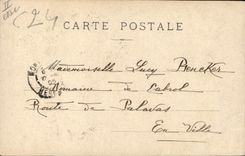 CARTE POSTALE
Mademoiselle Lucy Bencker
Domaine de Cabrol
Route de Palavas
En Ville